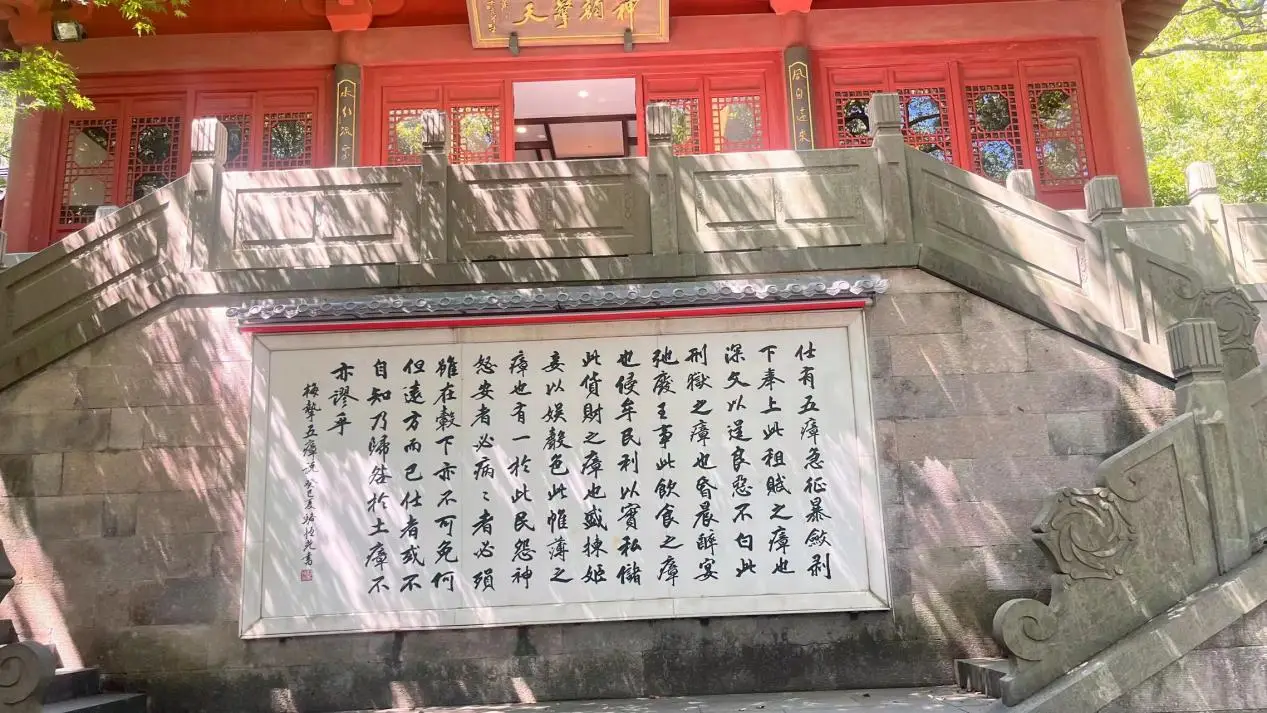 神韻擎天
風自遠來
仕有五瘴急征暴斂剥
下奉上此租賦之瘴也
深文以逞良惡不白此
刑獄之瘴也昏晨醉宴
弛廢王事此飲食之瘴
也侵牟民利以實私儲
此貨財之瘴也盛揀姬
妾以娛聲色此帷薄之
瘴也有一於此民怨神
怒安者必病〻者必殞
雖在轂下亦不可免何
但遠方而已仕者或不
自知乃歸咎於土瘴不
亦謬乎
梅摯五瘴説 癸巳夏